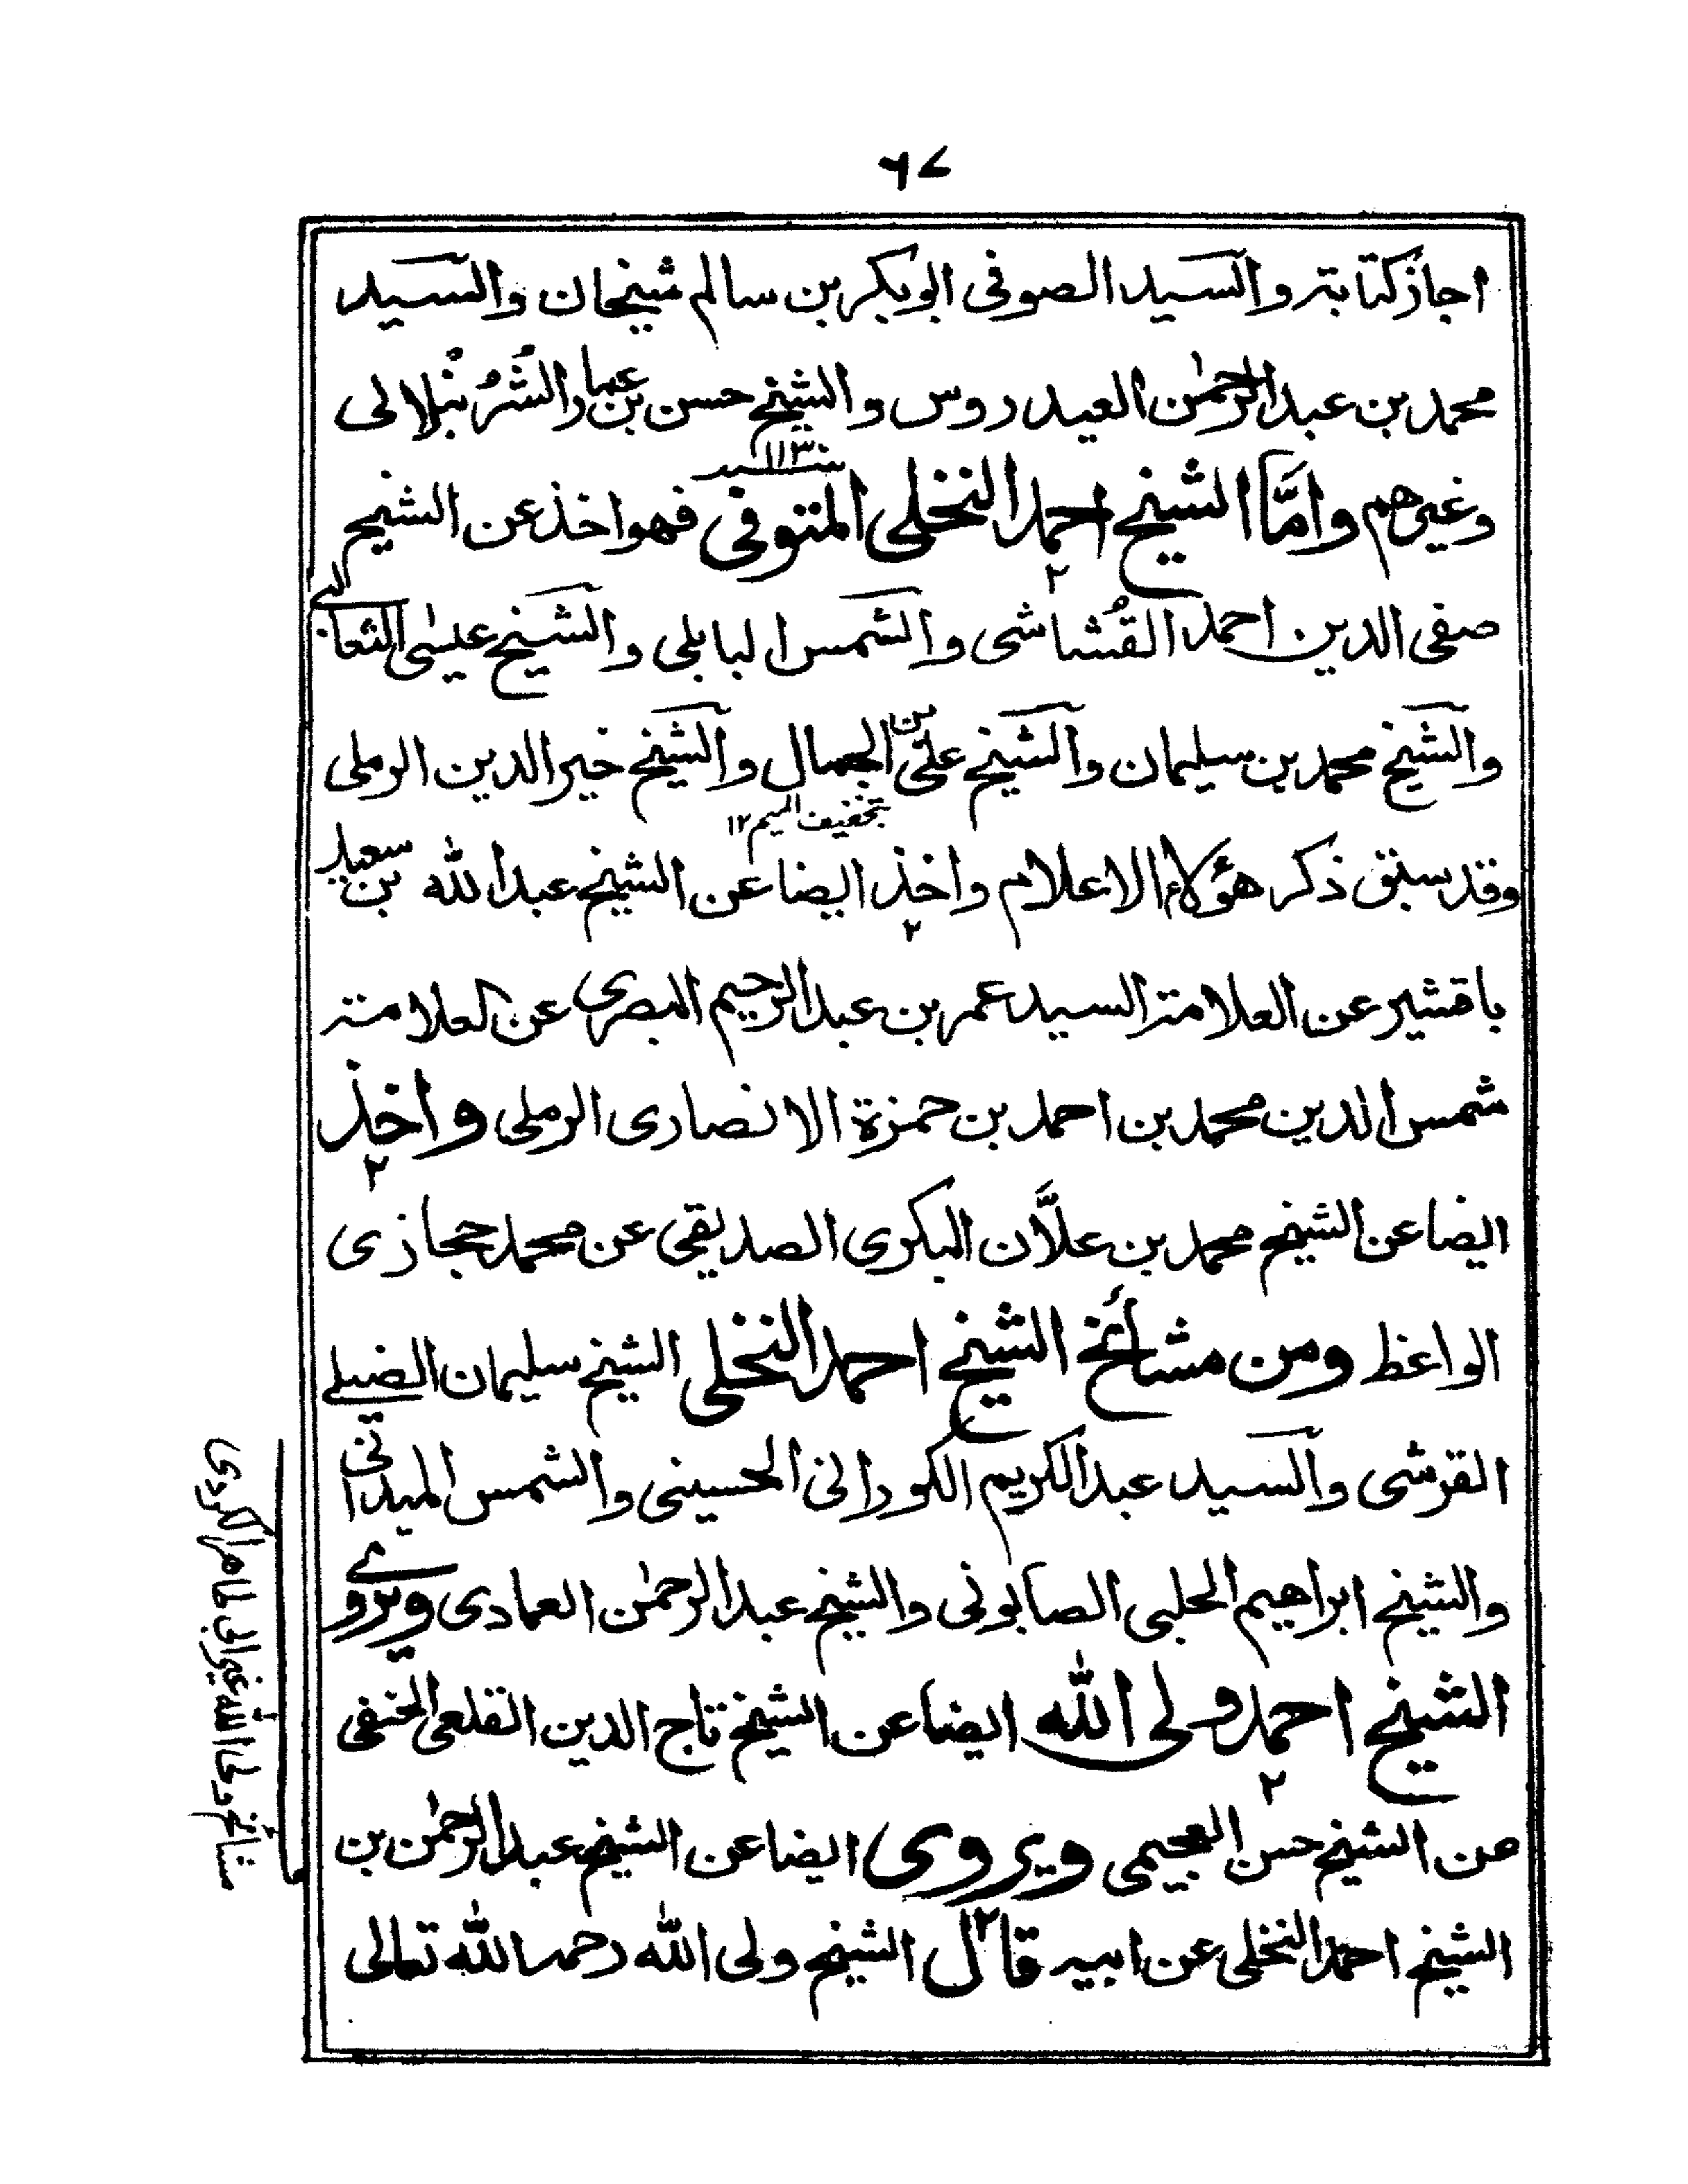 ٦٧
اجاز كتابة والسيد الصوفى ابوبكر بن سالم شيخان والسيد
محمد بن عبدالرحمٰن العيدروس والشيخ حسن بن عمار الشُرُنْبُلالى
وغيرهم وامَّا الشيخ احمد النخلى المتوفى سنة ١١٣٠ فهو اخذ عن الشيخ
صفى الدين احمد القُشاشى والشمس البابلى والشيخ عيسٰى الثعالبى
والشيخ محمد بن سليمان والشيخ على بن الجمال والشيخ خير الدين الرملى
بتخفيف الميم ١٢
وقد سبق ذكر هؤلاء الاعلام واخذ ايضا عن الشيخ عبد الله بن سعيد
باقشير عن العلامة السيد عمر بن عبد الرحيم البصرى عن لعلامة
شمس الدين محمد بن احمد بن حمزة الانصارى الرملى واخذ
ايضا عن الشيخ محمد بن علَّان البكرى الصديقى عن محمد حجازى
الواعظ ومن مشائخ الشيخ احمد النخلى الشيخ سليمان الضيلى
القرشى والسيد عبد الكريم الكورانى الحسينى والشمس الميدانى
والشيخ ابراهيم الحلبى الصابونى والشيخ عبد الرحمٰن العمادى ويروى
الشيخ احمد ولى الله ايضا عن الشيخ تاج الدين القلعى الحنفى
عن الشيخ حسن العجيمى ويروى ايضا عن الشيخ عبد الرحمٰن بن
الشيخ احمد النخلى عن ابيه قال الشيخ ولى الله رحمه الله تعالى
مشائخ ولى الله غير ابى طاهر الكردى